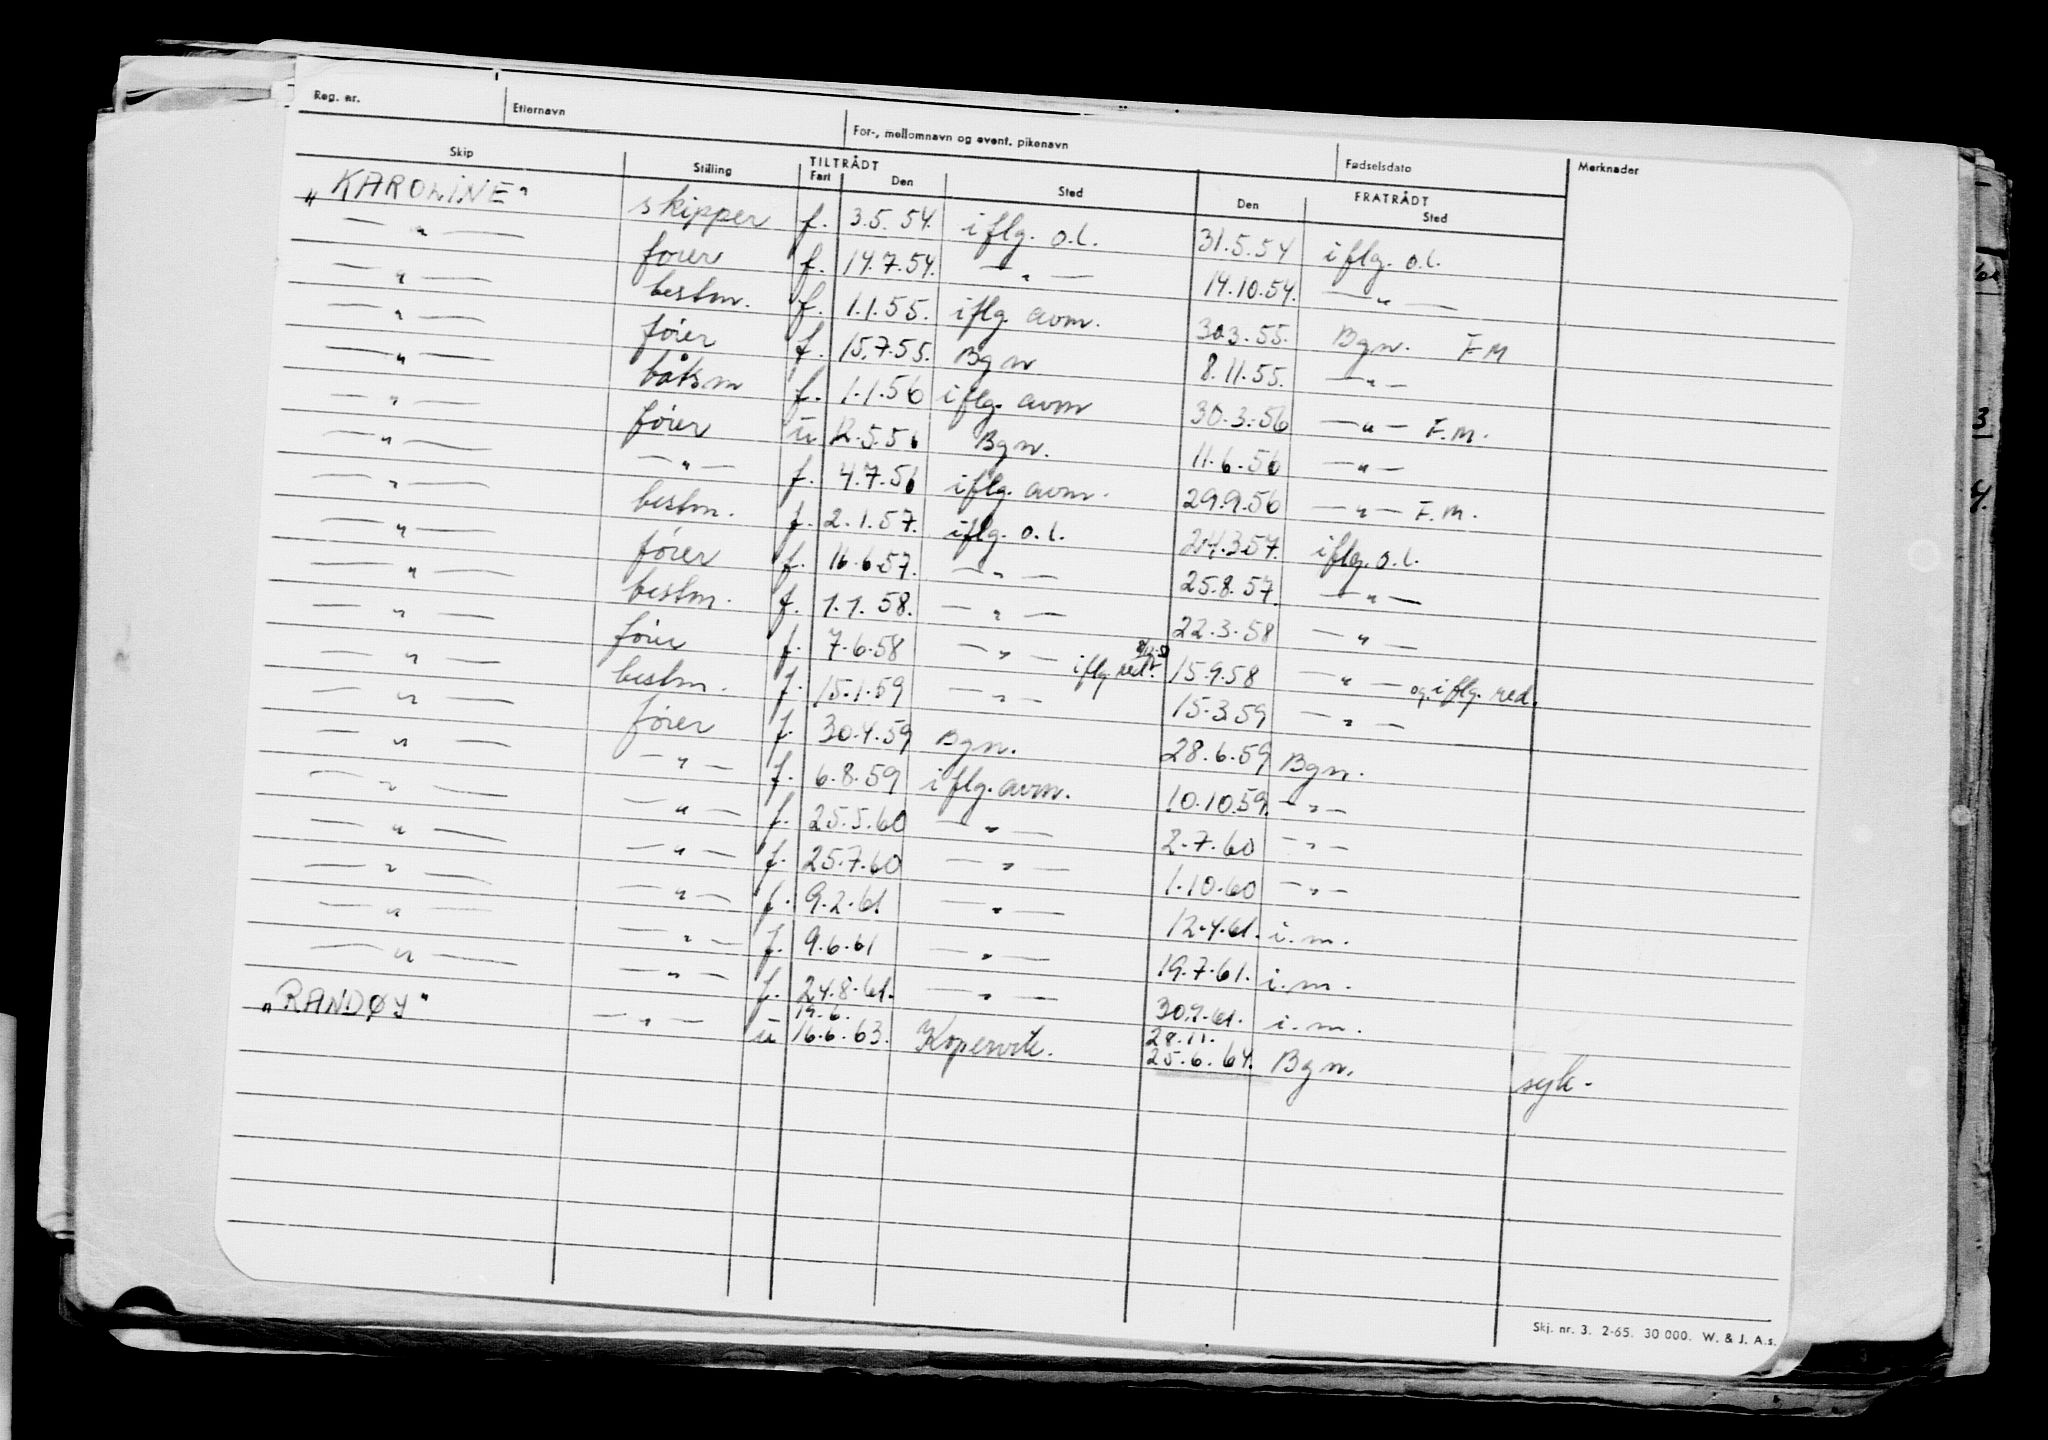 Reg. nr. Etternavn For-, mellomnavn og event. pikenavn Fødselsdato Merknader
Skip Stilling TILTRÅDT Fart Den Sted FRATRÅDT Den Sted
"KAROLINE" skipper f. 3.5.54. iflg. o.l. 31.5.54 iflg. o.l.
— " — fører f. 14.7.54. — " — 14.10.54. — " —
— " — bestm. f. 1.1.55. iflg. avm. 30.3.55. Bgn. F.M
— " — fører f. 15.7.55. Bgn. 8.11.55. — " —
— " — båtsm f. 1.1.56 iflg. avm 30.3.56 — " — F.M.
— " — fører u 12.5.56 Bgn. 11.6.56 — " —
— " — — " — f. 4.7.56 iflg. avm. 29.9.56 — " — F.M.
— " — bestm. f. 2.1.57. iflg. o.l. 24.3.57. iflg. o.l.
— " — fører f. 16.6.57. — " — 25.8.57. — " —
— " — bestm. f. 1.1.58. — " — 22.3.58 — " —
— " — fører f. 7.6.58 — " — iflg red. 15.9.58 — " — og iflg. red.
— " — bestm. f. 15.1.59 — " — 15.3.59 — " —
— " — fører f. 30.4.59 Bgn. 28.6.59 Bgn.
— " — — " — f. 6.8.59 iflg. avm. 10.10.59. — " —
— " — — " — f. 25.5.60 — " — 2.7.60 — " —
— " — — " — f. 25.7.60 — " — 1.10.60 — " —
— " — — " — f. 9.2.61. — " — 12.4.61. i.m.
— " — — " — f. 9.6.61 — " — 19.7.61. i.m.
— " — — " — f. 24.8.61. — " — 30.9.61. i.m.
19.6. 28.11.
"RANDØY" — " — u 16.6.63. Kopervik. 25.6.64. Bgn. syk.
Skj. nr. 3. 2-65. 30 000. W. & J. A.s.